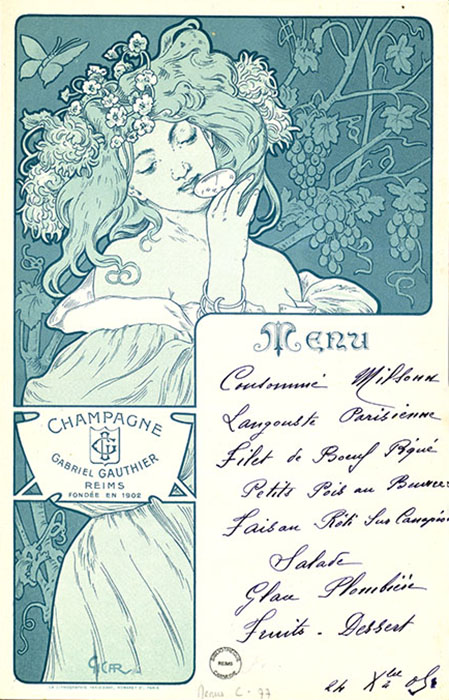 CHAMPAGNE
G G
GABRIEL GAUTHIER
REIMS
FONDÉE EN 1902
MENU
Consommé
Langouste Parisienne
Filet de Bœuf Piqué
Petits Pois au Beurre
Faisan Rôti Sur Canapés
Salade
Glace Plombière
Fruits - Dessert
24 Xbre
BIBLIOTHÈQUE
REIMS
CARNEGIE
Menus C - 77